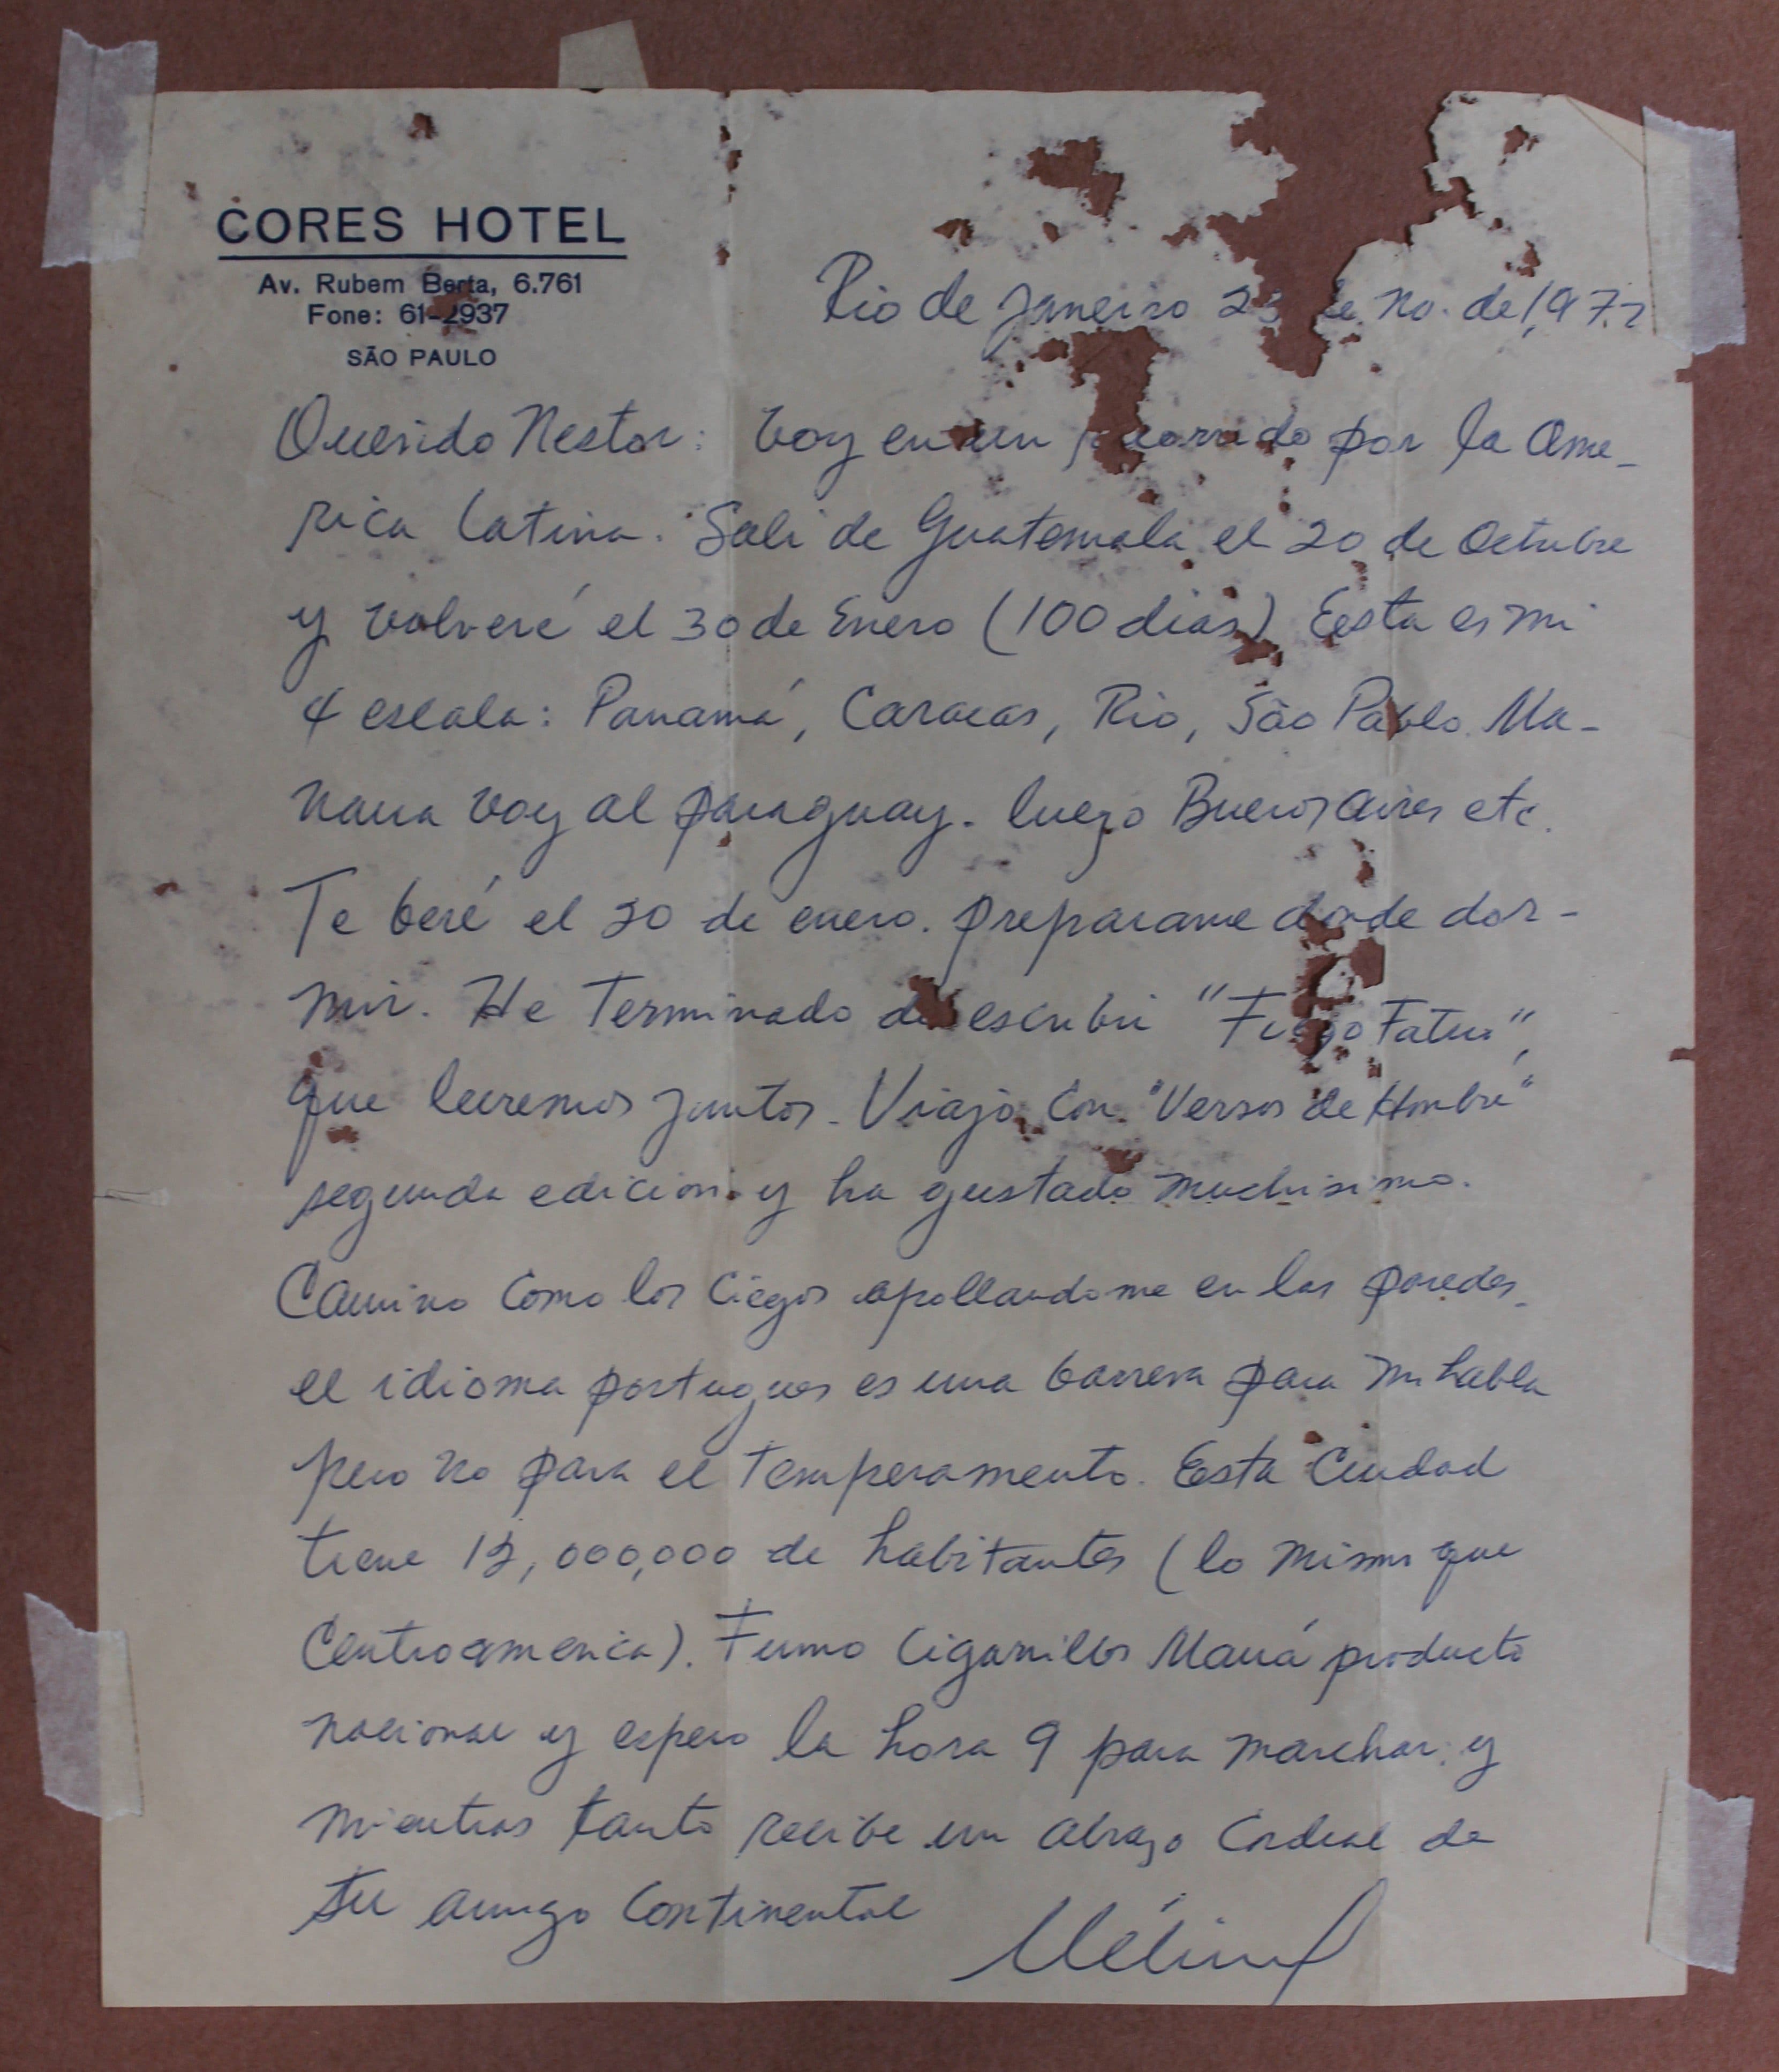 CORES HOTEL
Av. Rubem Berta, 6.761
Fone: 61-2937
SÃO PAULO
Rio de Janeiro 23 de No. de 1,972
Querido Nestor: Voy en un recorrido por la Ame-
rica Latina. Sali de Guatemala el 20 de Octubre
y volveré el 30 de Enero (100 dias) Eesta es mi
4 escala: Panamá, Caracas, Rio, São Pablo. Ma-
nana voy al paraguay. luego Buenos Aires etc.
Te beré el 30 de enero. preparame donde dor-
mir. He Terminado de escribir "Fuego Fatuo",
que leeremos juntos. Viajo con "Versos de Hombre"
segunda edicion y ha gustado muchisimo.
Camino como los Ciegos apollandome en las paredes.
el idioma portugues es una barrera para mi habla
pero no para el temperamento. Eesta Ciudad
tiene 12,000,000 de habitantes (lo mismo que
Centroamerica). Fumo Cigarrillos Mauá producto
nacional y espero la hora 9 para marchar. y
mientras tanto recibe un abrazo Cordial de
tu amigo Continental